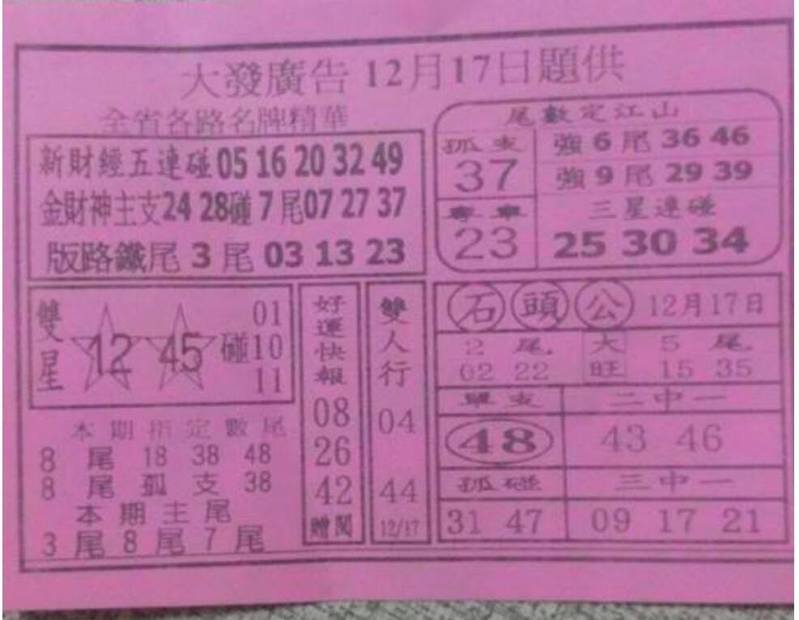 大發廣告 12月17日題供
全省各路名牌精華
新財經五連碰 05 16 20 32 49
金財神主支 24 28 碰 7 尾 07 27 37
版路鐵尾 3 尾 03 13 23
尾數定江山
孤支
37
專車
23
強 6 尾 36 46
強 9 尾 29 39
三星連碰
25 30 34
雙星
12 45 碰
01
10
11
本期指定數尾
8 尾 18 38 48
8 尾 孤支 38
本期主尾
3 尾 8 尾 7 尾
好運快報
08
26
42
贈閱
雙人行
04
44
12/17
石頭公 12月17日
2 尾 大 5 尾
02 22 旺 15 35
單支
48
二中一
43 46
孤碰
31 47
三中一
09 17 21